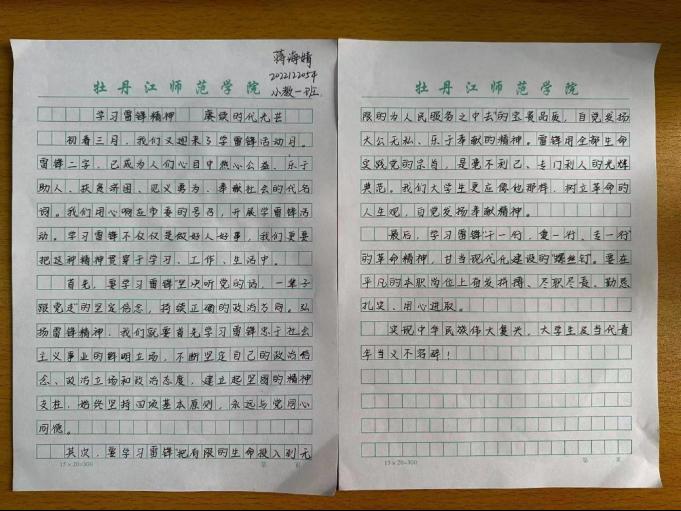 蒋海婧
2022122054
小教一班
牡丹江师范学院
学习雷锋精神 赓续时代光芒
初春三月,我们又迎来了学雷锋活动月。
雷锋二字,已成为人们心目中热心公益、乐于
助人、扶贫济困、见义勇为、奉献社会的代名
词。我们用心响应市委的号召,开展学雷锋活
动。学习雷锋不仅仅是做好人好事,我们更要
把这种精神贯穿于学习、工作、生活中。
首先,要学习雷锋"坚决听党的话,一辈子
跟党走"的坚定信念,持续正确的政治方向。弘
扬雷锋精神,我们就要首先学习雷锋忠于社会
主义事业的鲜明立场,不断坚定自己的政治信
念、政治立场和政治态度,建立起坚固的精神
支柱,始终坚持四项基本原则,永远与党同心
同德。
其次,要学习雷锋"把有限的生命投入到无
15×20=300
第 页
牡丹江师范学院
限的为人民服务之中去"的宝贵品质,自觉发扬
大公无私、乐于奉献的精神。雷锋用全部生命
实践党的宗旨,是毫不利己、专门利人的光辉
典范。我们大学生更应像他那样,树立革命的
人生观,自觉发扬奉献精神。
最后,学习雷锋"干一行、爱一行、专一行"
的革命精神,甘当现代化建设的"螺丝钉"。要在
平凡的本职岗位上奋发拼搏、尽职尽责、勤恳
扎实、用心进取。
实现中华民族伟大复兴,大学生及当代青
年当义不容辞!
15×20=300
第 页